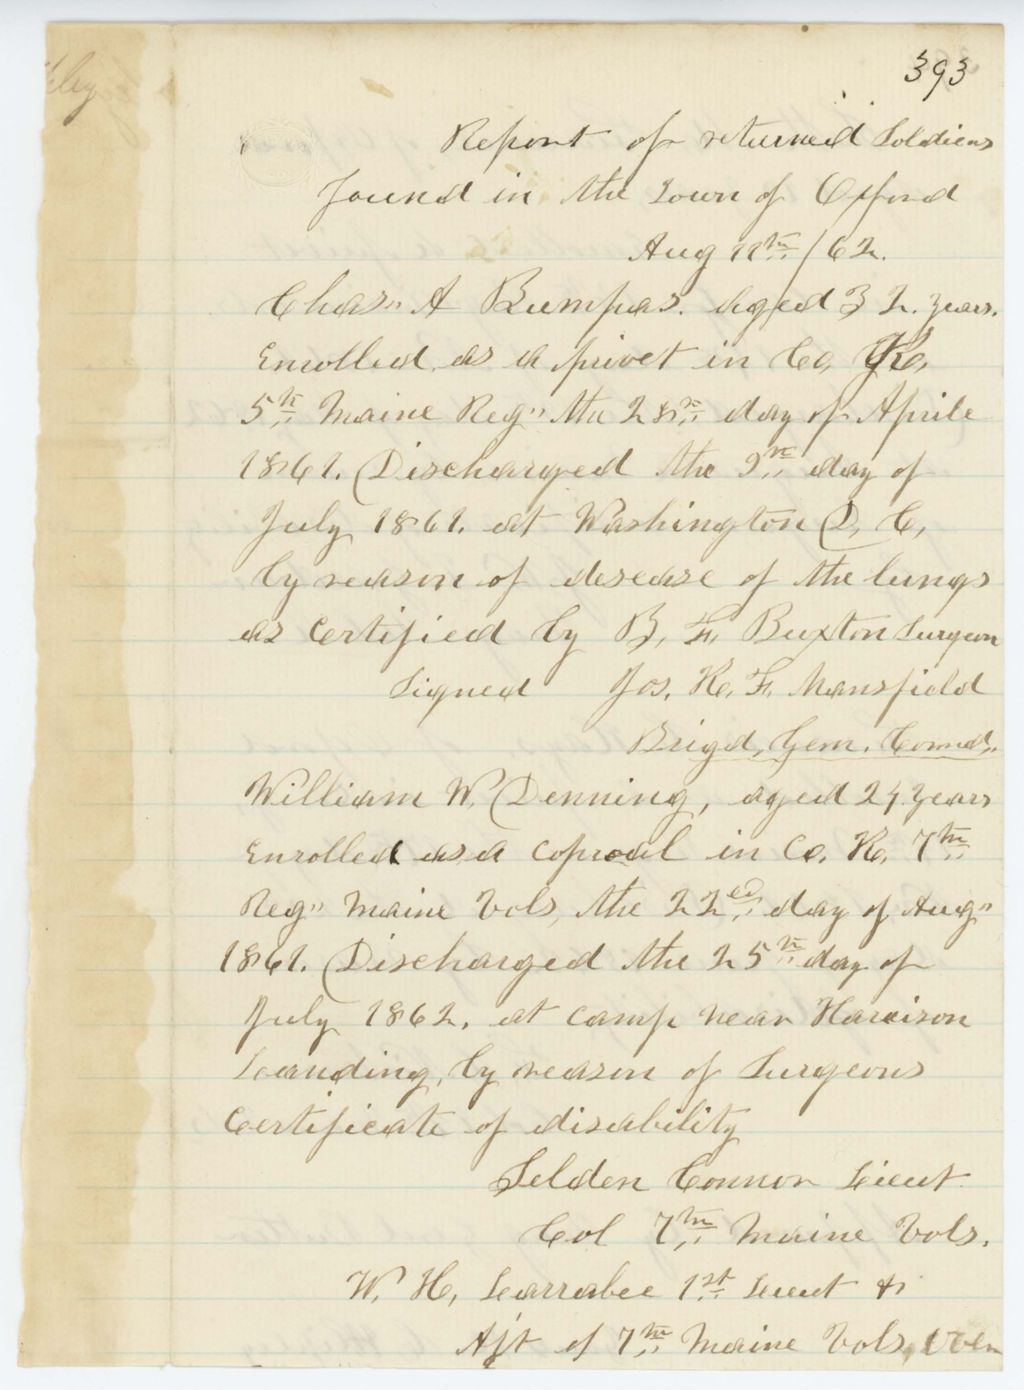 393
Report of returned Soldiers
found in the Town of Oxford
Aug 11th / 62.
Chas" A Bumpas. aged 32. years.
Enrolled as a privet in Co, K,
5th Maine Reg" the 28th day of Aprile
1861. Discharged the 9th day of
July 1861. at Washington D, C,
by reason of desease of the lungs
as Certified by B, F, Buxton Surgeon
Signed Jos, K, F. Mansfield
Brigd, Genr. Comd,,
William W, Denning, aged 24 years
Enrolled as a Coproal in Co, K, 7th
Reg" Maine Vols, the 22ed day of Aug"
1861. Discharged the 25th day of
July 1862. at Camp near Harrison
Landing, by reason of Surgeons
Certificate of disability
Selden Connor Lieut
Col 7th Maine Vols.
W. H, Larrabee 1st Lieut &
Ajt of 7th Maine Vols,